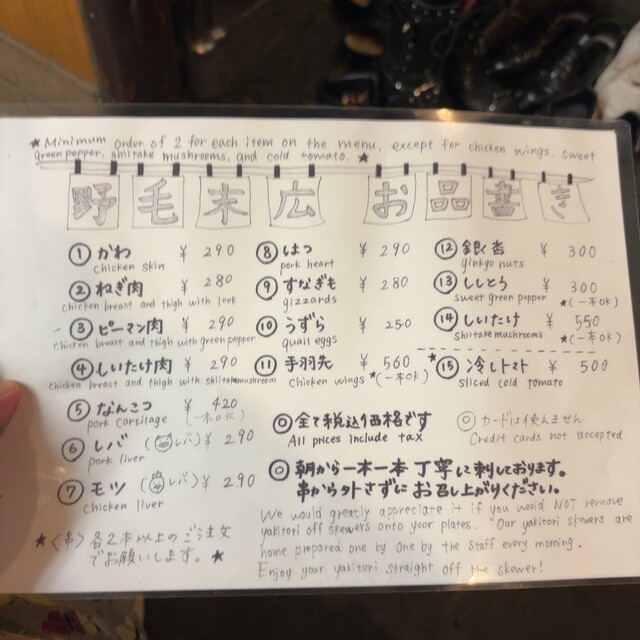 ★Minimum order of 2 for each item on the menu, except for chicken wings, sweet
green pepper, shiitake mushrooms, and cold tomato. ★
野毛末広 お品書き
① かわ ¥ 290
chicken skin
② ねぎ肉 ¥ 280
chicken breast and thigh with leek
③ ピーマン肉 ¥ 290
chicken breast and thigh with green pepper
④ しいたけ肉 ¥ 290
chicken breast and thigh with shiitake mushroom
⑤ なんこつ ¥ 420
pork cartilage (一本OK)
⑥ レバ (レバ) ¥ 290
pork liver
⑦ モツ (レバ) ¥ 290
chicken liver
★〈串〉各2本以上のご注文
でお願いします。★
⑧ はつ ¥ 290
pork heart
⑨ すなぎも ¥ 280
gizzards
⑩ うずら ¥ 250
quail eggs
⑪ 手羽先 ¥ 560
chicken wings ★(一本OK)
⑫ 銀杏 ¥ 300
ginkgo nuts
⑬ ししとう ¥ 300
sweet green pepper ★(一本OK)
⑭ しいたけ ¥ 550
shiitake mushrooms ★(一本OK)
★⑮ 冷しトマト ¥ 500
sliced cold tomato
◎ 全て税込価格です
All prices include tax
◎ カードは使えません
Credit cards not accepted
◎ 朝から一本一本 丁寧に刺しております。
串から外さずに お召し上がりください。
We would greatly appreciate it if you would NOT remove
yakitori off skewers onto your plates. Our yakitori skewers are
home prepared one by one by the staff every morning.
Enjoy your yakitori straight off the skewer!